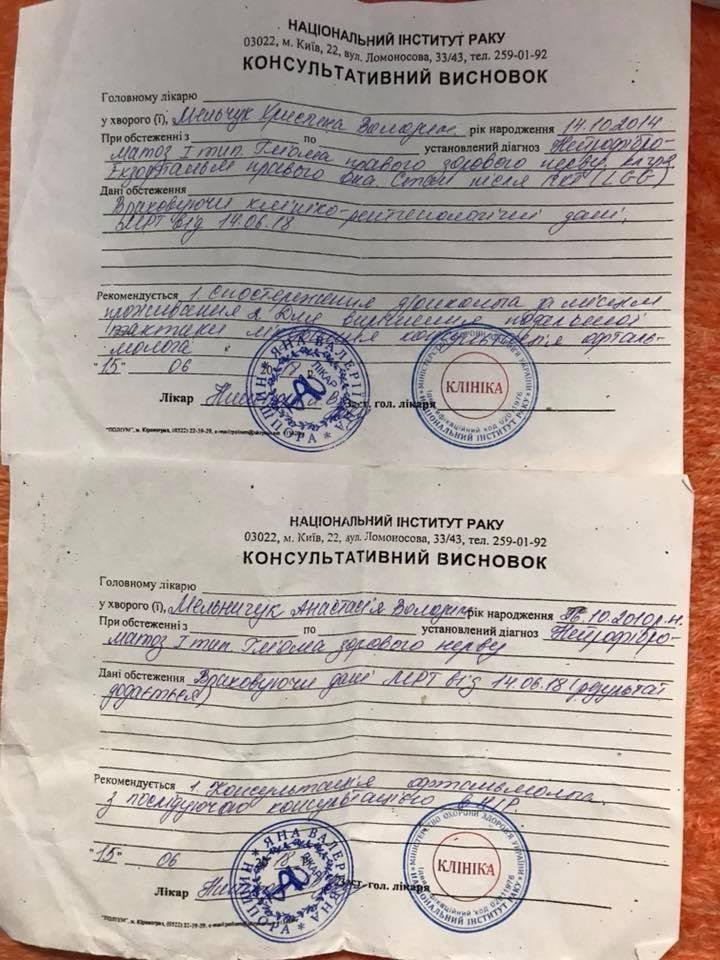 НАЦІОНАЛЬНИЙ ІНСТИТУТ РАКУ
03022, м. Київ, 22, вул. Ломоносова, 33/43, тел. 259-01-92
КОНСУЛЬТАТИВНИЙ ВИСНОВОК
Головному лікарю
у хворого (ї), Мельчук Христина Володим рік народження 14.10.2014
При обстеженні з по установлений діагноз Нейрофібро-
матоз І тип. Гліома правого зорового нерву.
Екзофтальм правого ока. Стан після (LGG)
Дані обстеження
Враховуючи клініко-рентгенологічні дані,
МРТ від 14.06.18
Рекомендується 1. Спостереження за місцем
проживання 2. Для вирішення подальшої
тактики лікування консультація офталь-
молога
"15" 06
Лікар гол. лікаря
КЛІНІКА
МІНІСТЕРСТВО ОХОРОНИ ЗДОРОВ'Я УКРАЇНИ
НАЦІОНАЛЬНИЙ ІНСТИТУТ РАКУ
"ПОЛІУМ", м. Кіровоград, (0522) 22-39-29,
НАЦІОНАЛЬНИЙ ІНСТИТУТ РАКУ
03022, м. Київ, 22, вул. Ломоносова, 33/43, тел. 259-01-92
КОНСУЛЬТАТИВНИЙ ВИСНОВОК
Головному лікарю
у хворого (ї), Мельничук Анастасія Володим рік народження .10.2010р.н.
При обстеженні з по установлений діагноз Нейрофібро-
матоз І тип. Гліома зорового нерву
Дані обстеження Враховуючи дані МРТ від 14.06.18 (результат
додається)
Рекомендується 1. Консультація офтальмолога
з послідуючою консультацією в НІР.
"15" 06 18
Лікар гол. лікаря
ЯНА ВАЛЕРІЇВНА
ЛІКАР
КЛІНІКА
МІНІСТЕРСТВО ОХОРОНИ ЗДОРОВ'Я УКРАЇНИ
НАЦІОНАЛЬНИЙ ІНСТИТУТ РАКУ
"ПОЛІУМ", м. Кіровоград, (0522) 22-39-29,